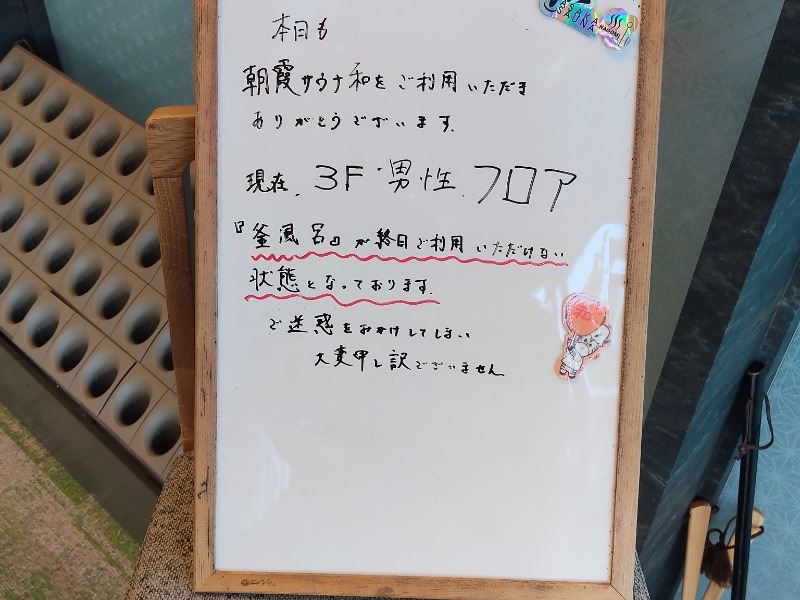 本日も
朝霞サウナ和をご利用いただき
ありがとうございます。
現在、3F・男性、フロア
『釜風呂』が終日ご利用いただけない
状態となっております。
ご迷惑をおかけしてしまい
大変申し訳ございません
和
SAUNA
NAGOMI